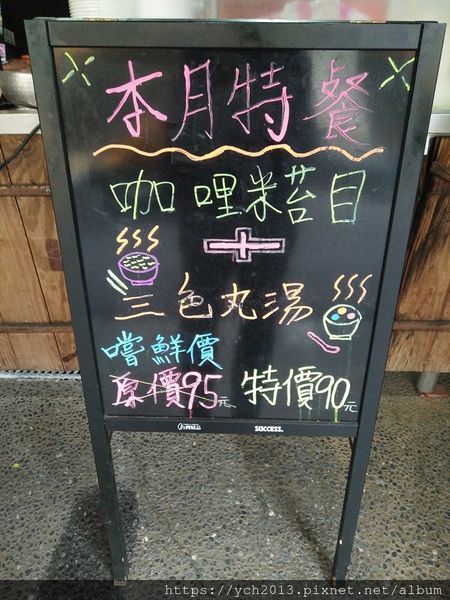 本月特餐
咖哩米苔目
+
三色丸湯
嚐鮮價
原價95元 特價90元
SUCCESS.
https://ych2013.pixnet.net/album